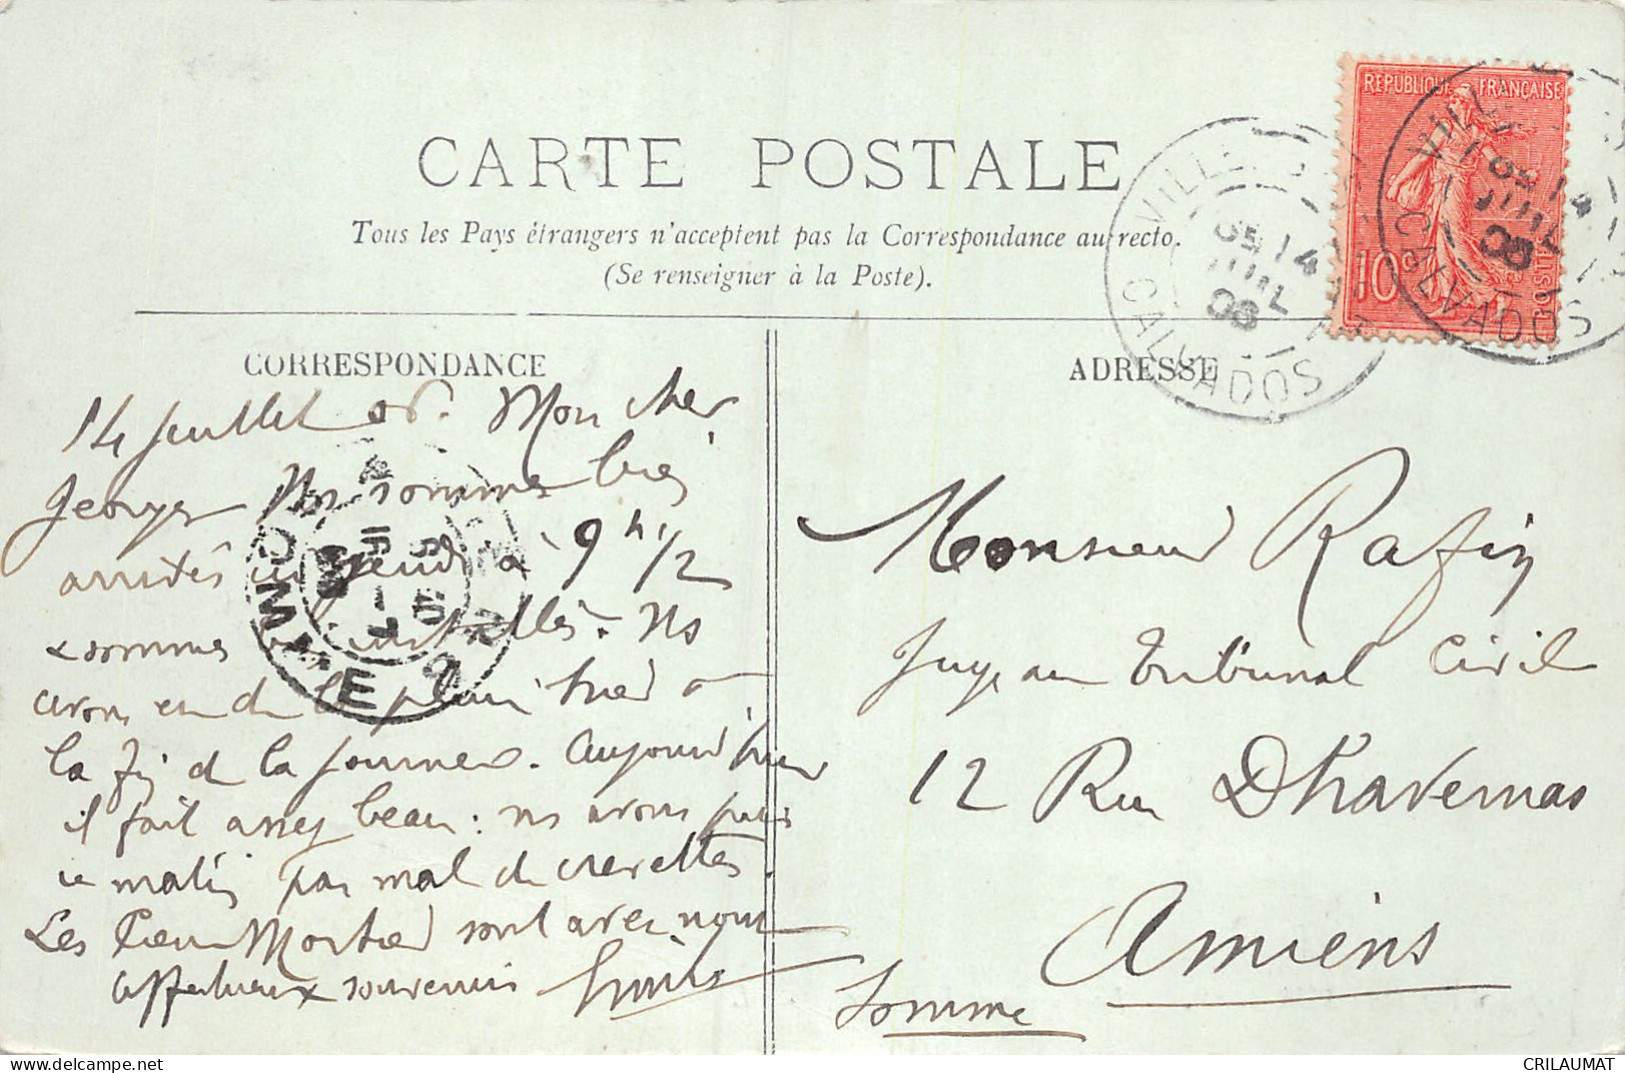 CARTE POSTALE
Tous les Pays étrangers n'acceptent pas la Correspondance au recto.
(Se renseigner à la Poste).
CORRESPONDANCE
14 Juillet 06. Mon cher
Georges Ns sommes bien
arrivés Jeudi à 9 h 1/2
& sommes installés. Ns
avons eu de la pluie hier à
la fin de la journée. Aujourd'hui
il fait assez beau : ns avons pris
ce matin pas mal de crevettes.
Les Pierre Mortier sont avec nous
affectueux souvenirs
ADRESSE
Monsieur Rafin
Juge au Tribunal Civil
12 Rue Dhavernas
Amiens
Somme
REPUBLIQUE FRANÇAISE
10c
POSTES
VILLE
14
JUIL
06
CALVADOS
VILL
14
JUIL
06
CALVADOS
SOMME
CRILAUMAT